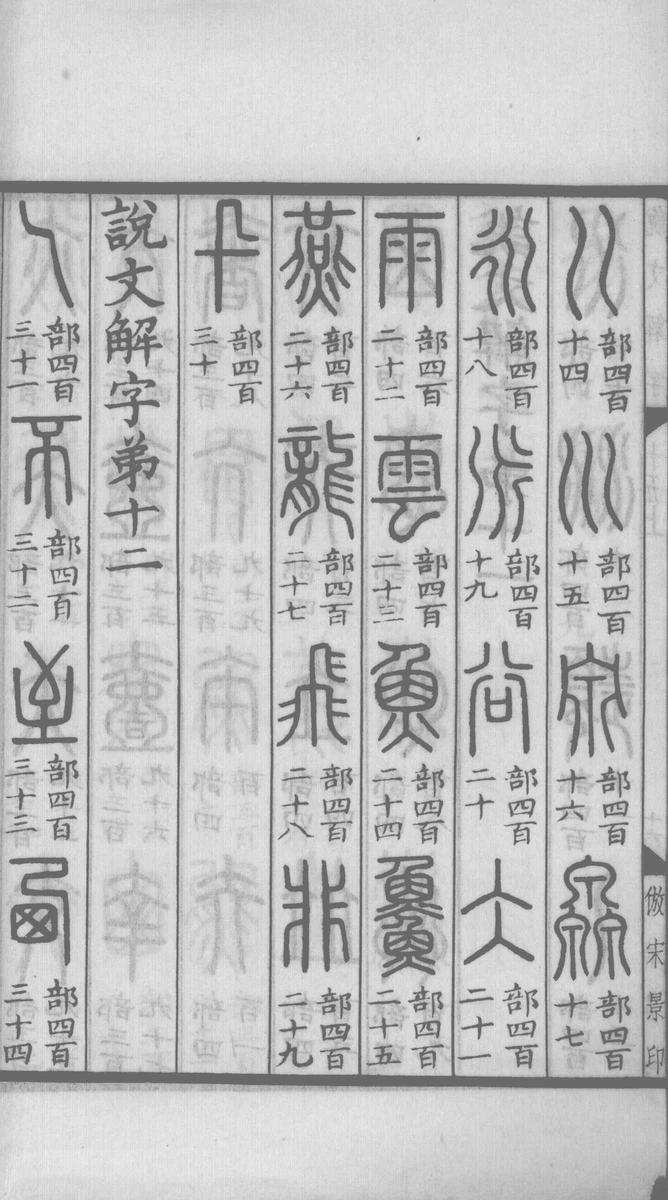 倣宋景印
巜部四百十四 川部四百十五 泉部四百十六 灥部四百十七
永部四百十八 𠂢部四百十九 谷部四百二十 仌部四百二十一
雨部四百二十二 雲部四百二十三 魚部四百二十四 𩺰部四百二十五
燕部四百二十六 龍部四百二十七 飛部四百二十八 非部四百二十九
卂部四百三十
說文解字弟十二
𠃉部四百三十一 不部四百三十二 至部四百三十三 西部四百三十四